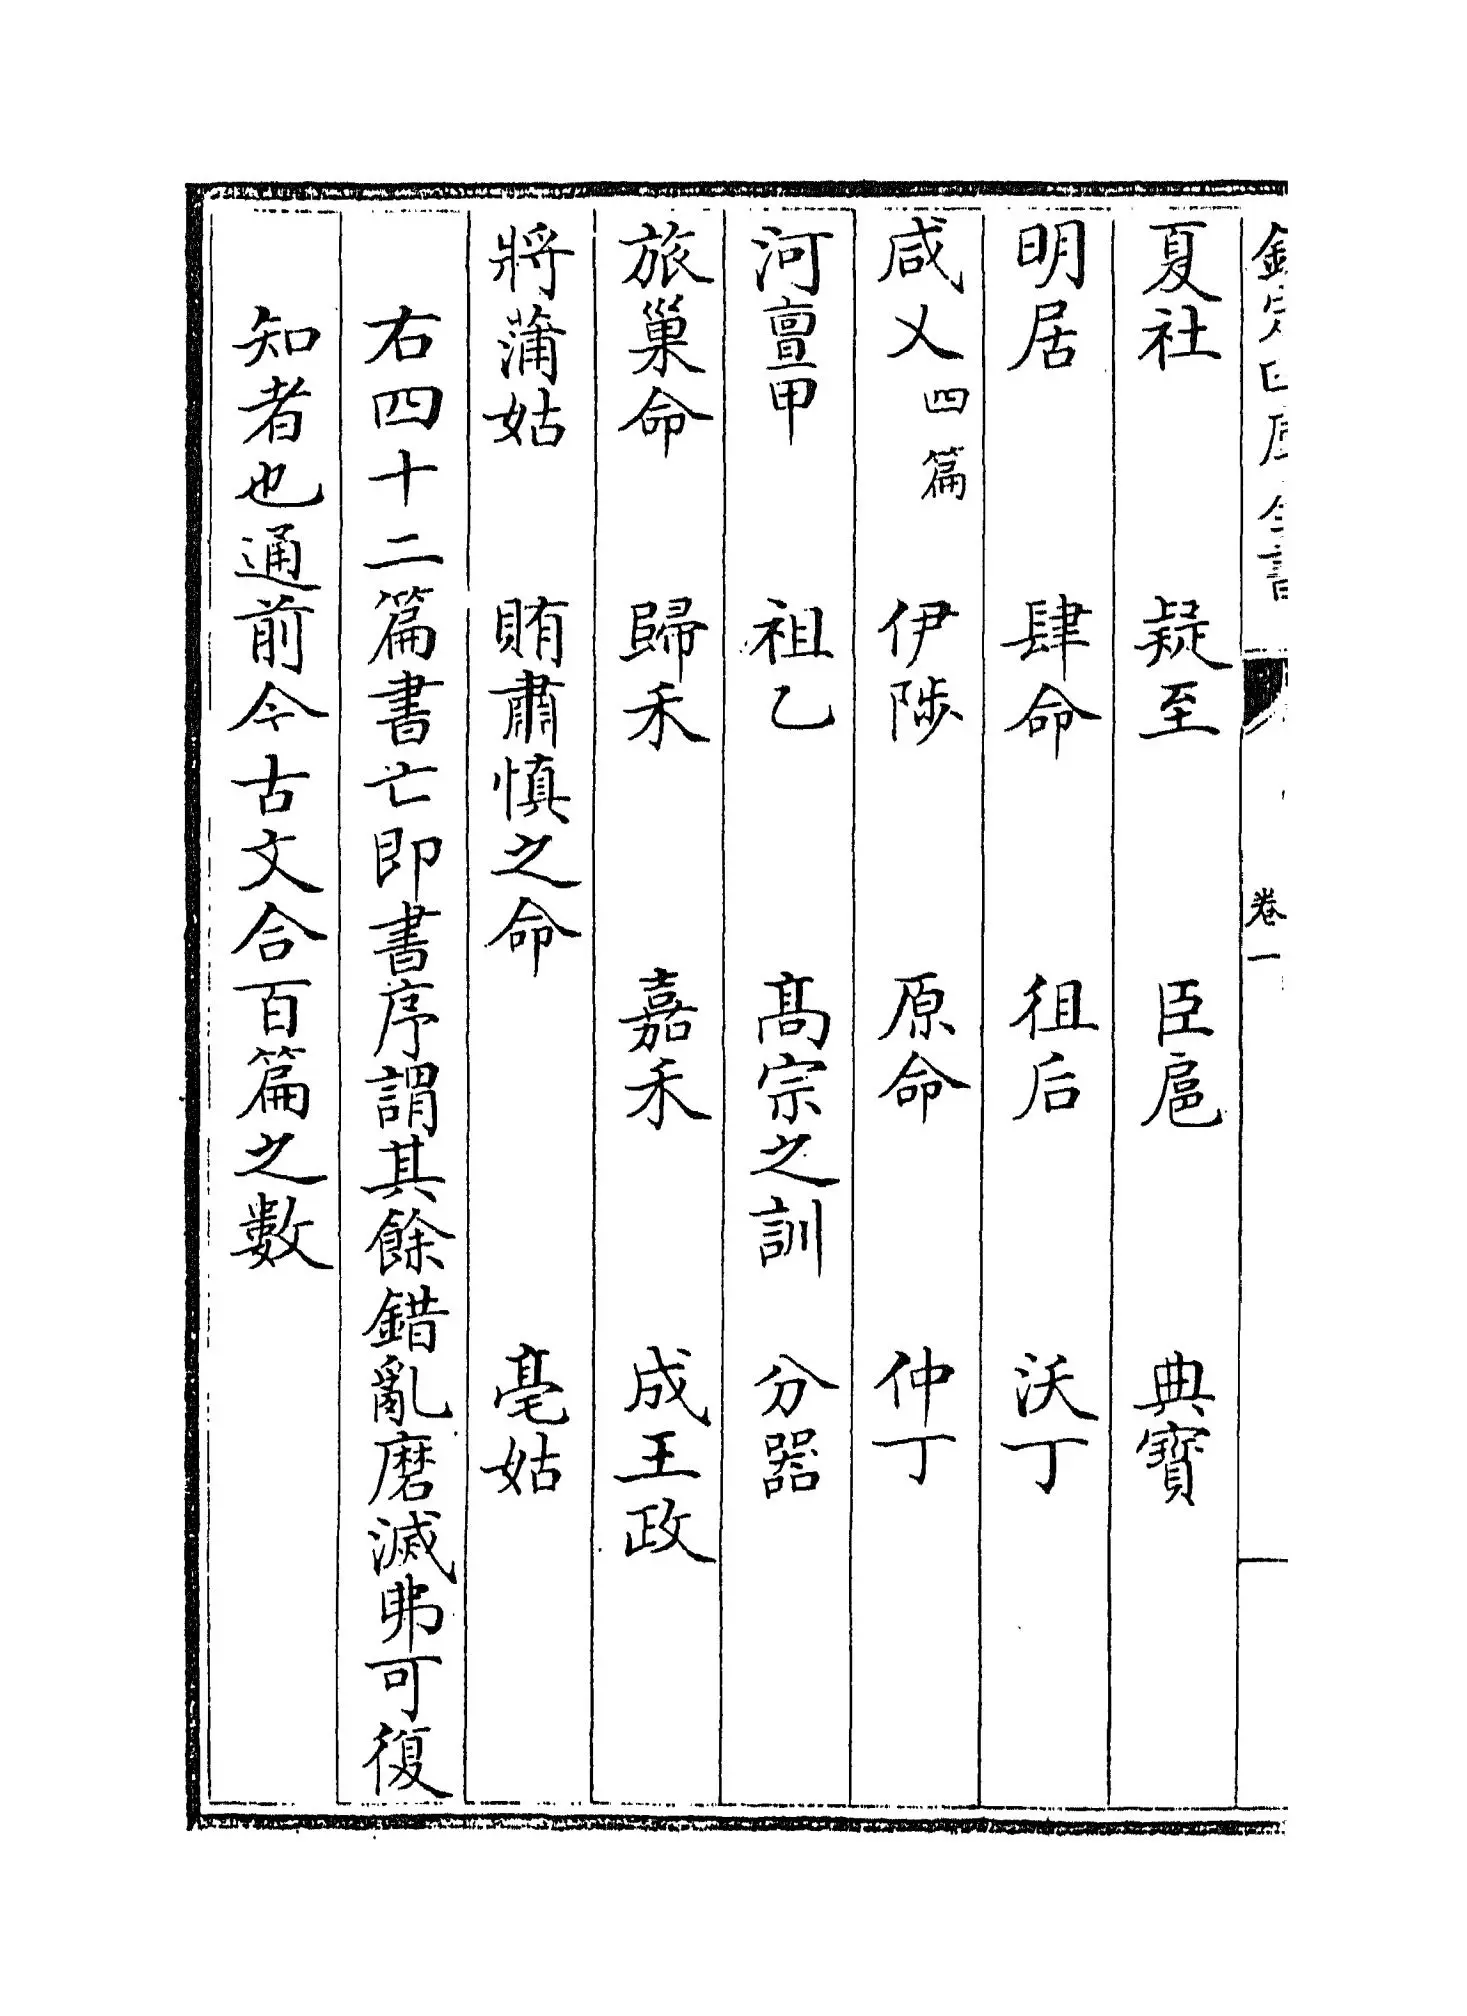 欽定四庫全書 卷一
夏社 疑至 臣扈 典寳
明居 肆命 徂后 沃丁
咸乂四篇 伊陟 原命 仲丁
河亶甲 祖乙 髙宗之訓 分器
旅巢命 歸禾 嘉禾 成王政
將蒲姑 賄肅慎之命 亳姑
右四十二篇書亡即書序謂其餘錯亂磨滅弗可復
知者也通前今古文合百篇之數